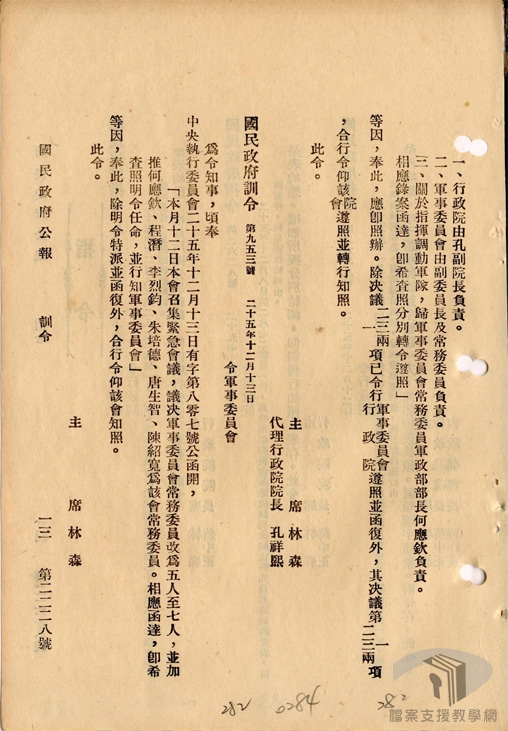 一、行政院由孔副院長負責。
二、軍事委員會由副委員長及常務委員負責。
三、關於指揮調動軍隊，歸軍事委員會常務委員軍政部部長何應欽負責。
相應錄案函達，卽希查照分別轉令遵照」
等因，奉此，應卽照辦。除決議二三兩項已令行軍事委員會行政院遵照並函復外，其決議第一二三兩項
，合行令仰該院會遵照並轉行知照。
此令。
主席 林森
代理行政院院長 孔祥熙
國民政府訓令 第九五三號 二十五年十二月十三日
令軍事委員會
爲令知事，頃奉
中央執行委員會二十五年十二月十三日有字第八零七號公函開，
「本月十二日本會召集緊急會議，議決軍事委員會常務委員改爲五人至七人，並加
推何應欽、程潛、李烈鈞、朱培德、唐生智、陳紹寬爲該會常務委員。相應函達，卽希
查照明令任命，並行知軍事委員會」
等因，奉此，除明令特派並函復外，合行令仰該會知照。
此令。
主席 林森
國民政府公報 訓令 一三 第二二二八號
282 0284 282
檔案支援教學網